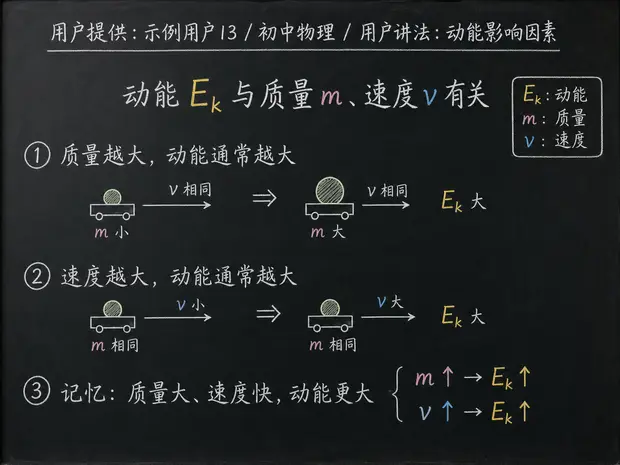 用户提供：示例用户13 / 初中物理 / 用户讲法：动能影响因素
动能 Eₖ 与质量 m、速度 v 有关
Eₖ：动能
m：质量
v：速度
① 质量越大，动能通常越大
v 相同
⇒
v 相同
Eₖ 大
m 小
m 大
② 速度越大，动能通常越大
v 小
⇒
v 大
Eₖ 大
m 相同
m 相同
③ 记忆：质量大、速度快，动能更大
m ↑ → Eₖ ↑
v ↑ → Eₖ ↑